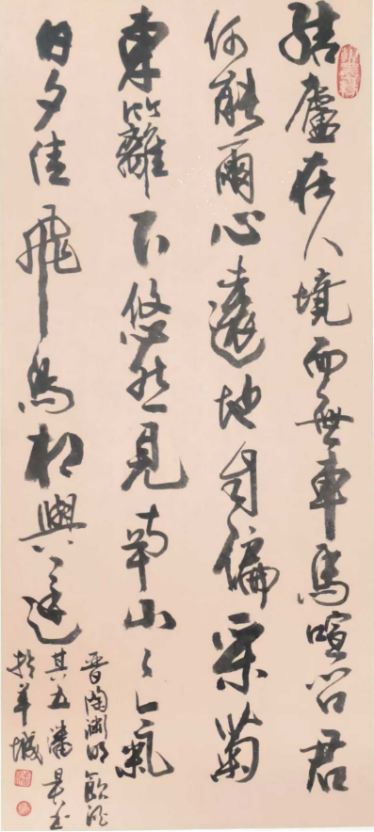 結廬在人境而無車馬喧问君
何能爾心遠地自偏采菊
東籬下悠然見南山々氣
日夕佳飛鳥相與還
晋陶渊明飲酒
其五潘
於羊城